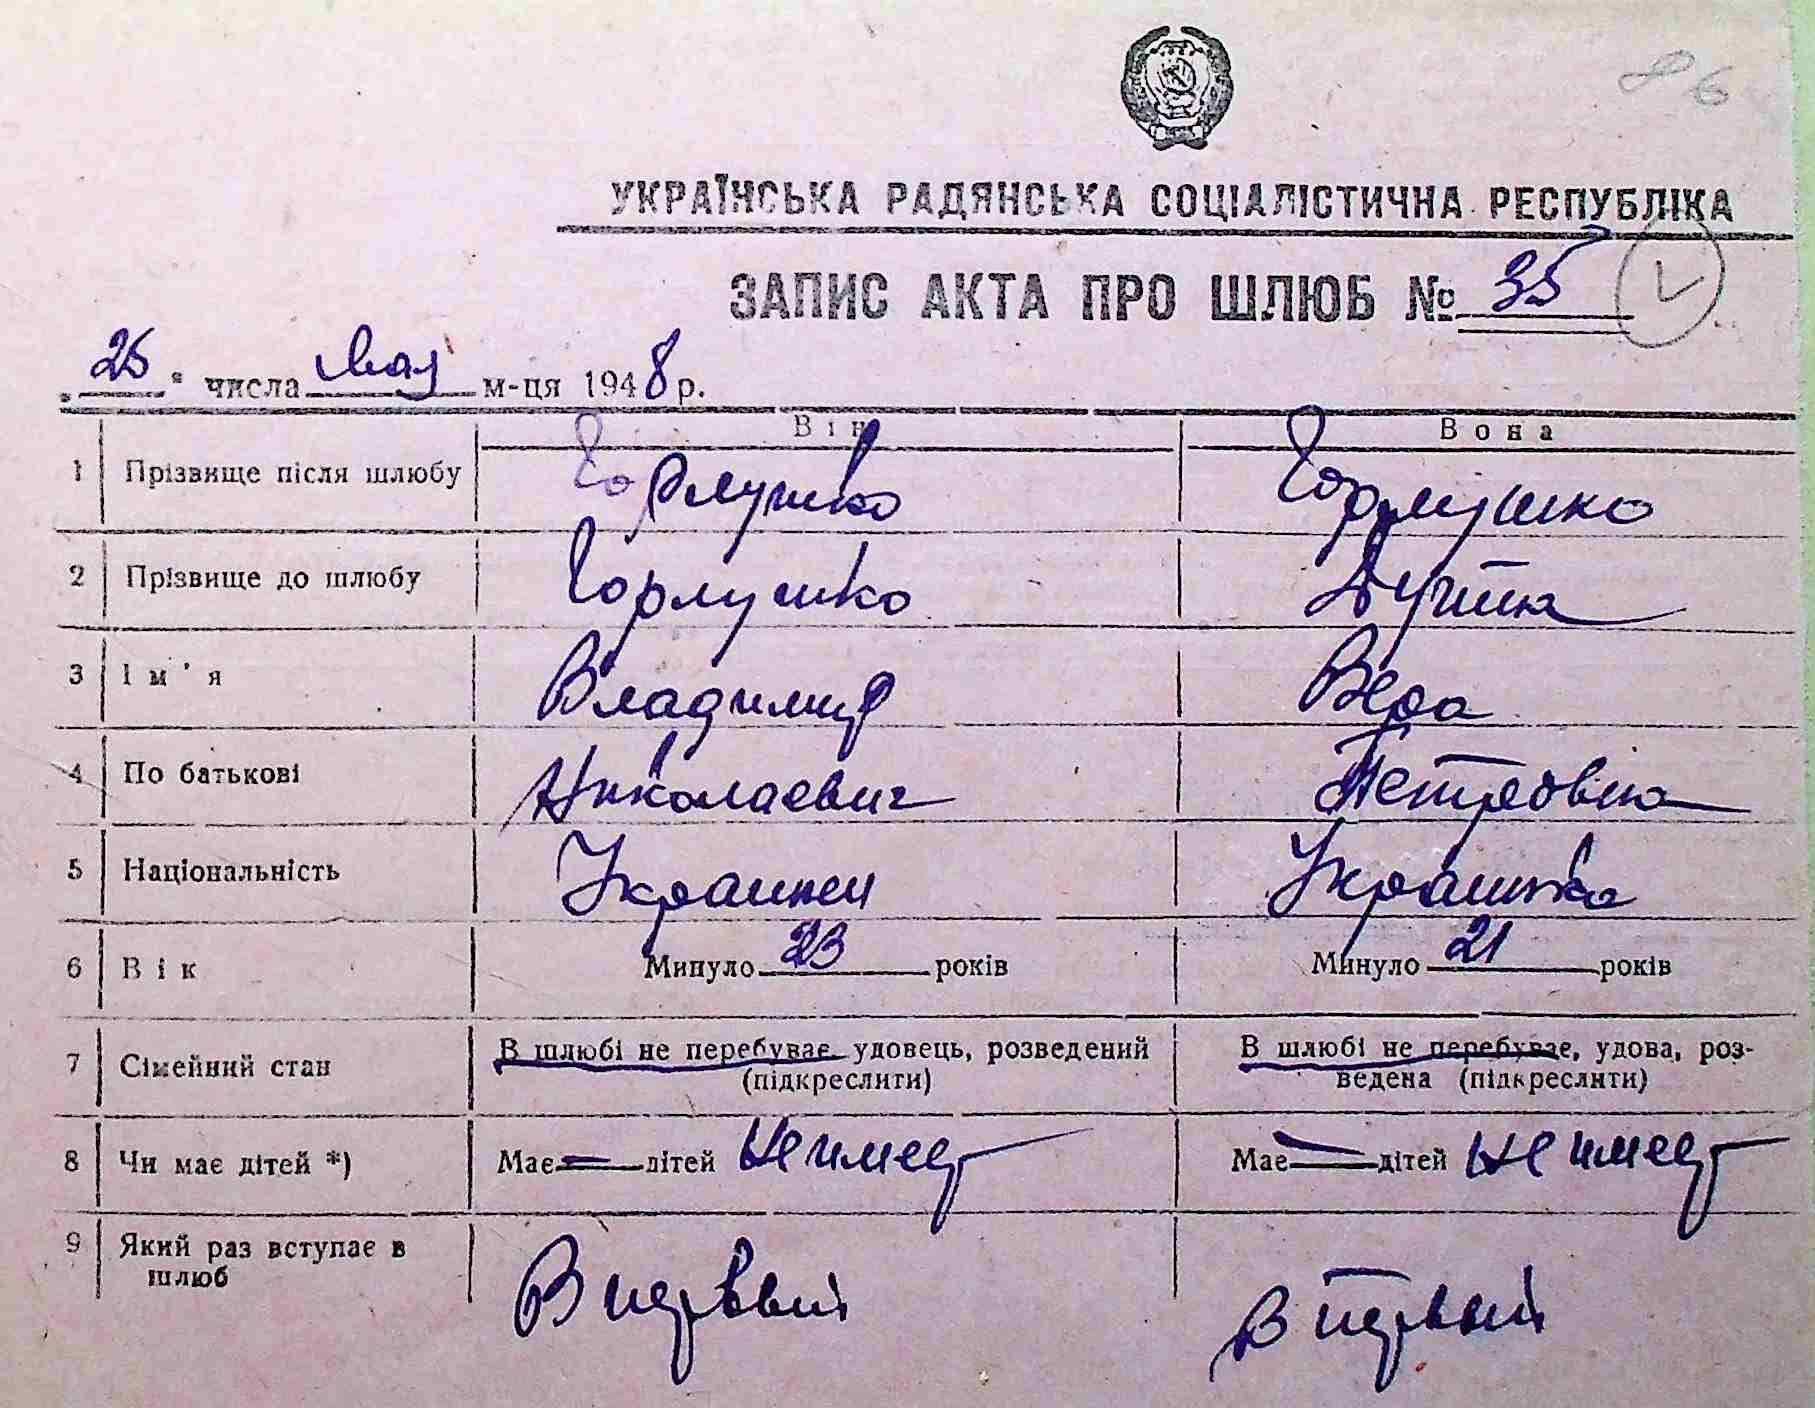 86
УКРАЇНСЬКА РАДЯНСЬКА СОЦІАЛІСТИЧНА РЕСПУБЛІКА
ЗАПИС АКТА ПРО ШЛЮБ № 35
"25" числа Мая м-ця 1948 р.
Він Вона
1 Прізвище після шлюбу Горлушко Горлушко
2 Прізвище до шлюбу Горлушко
3 Ім'я Владимир Вера
4 По батькові Николаевич Петровна
5 Національність Украинец Украинка
6 Вік Минуло 23 років Минуло 21 років
7 Сімейний стан В шлюбі не перебуває, удовець, розведений (підкреслити) В шлюбі не перебуває, удова, роз-
ведена (підкреслити)
8 Чи має дітей *) Має — дітей Не имеет Має — дітей Не имеет
9 Який раз вступає в
шлюб В первый В первый